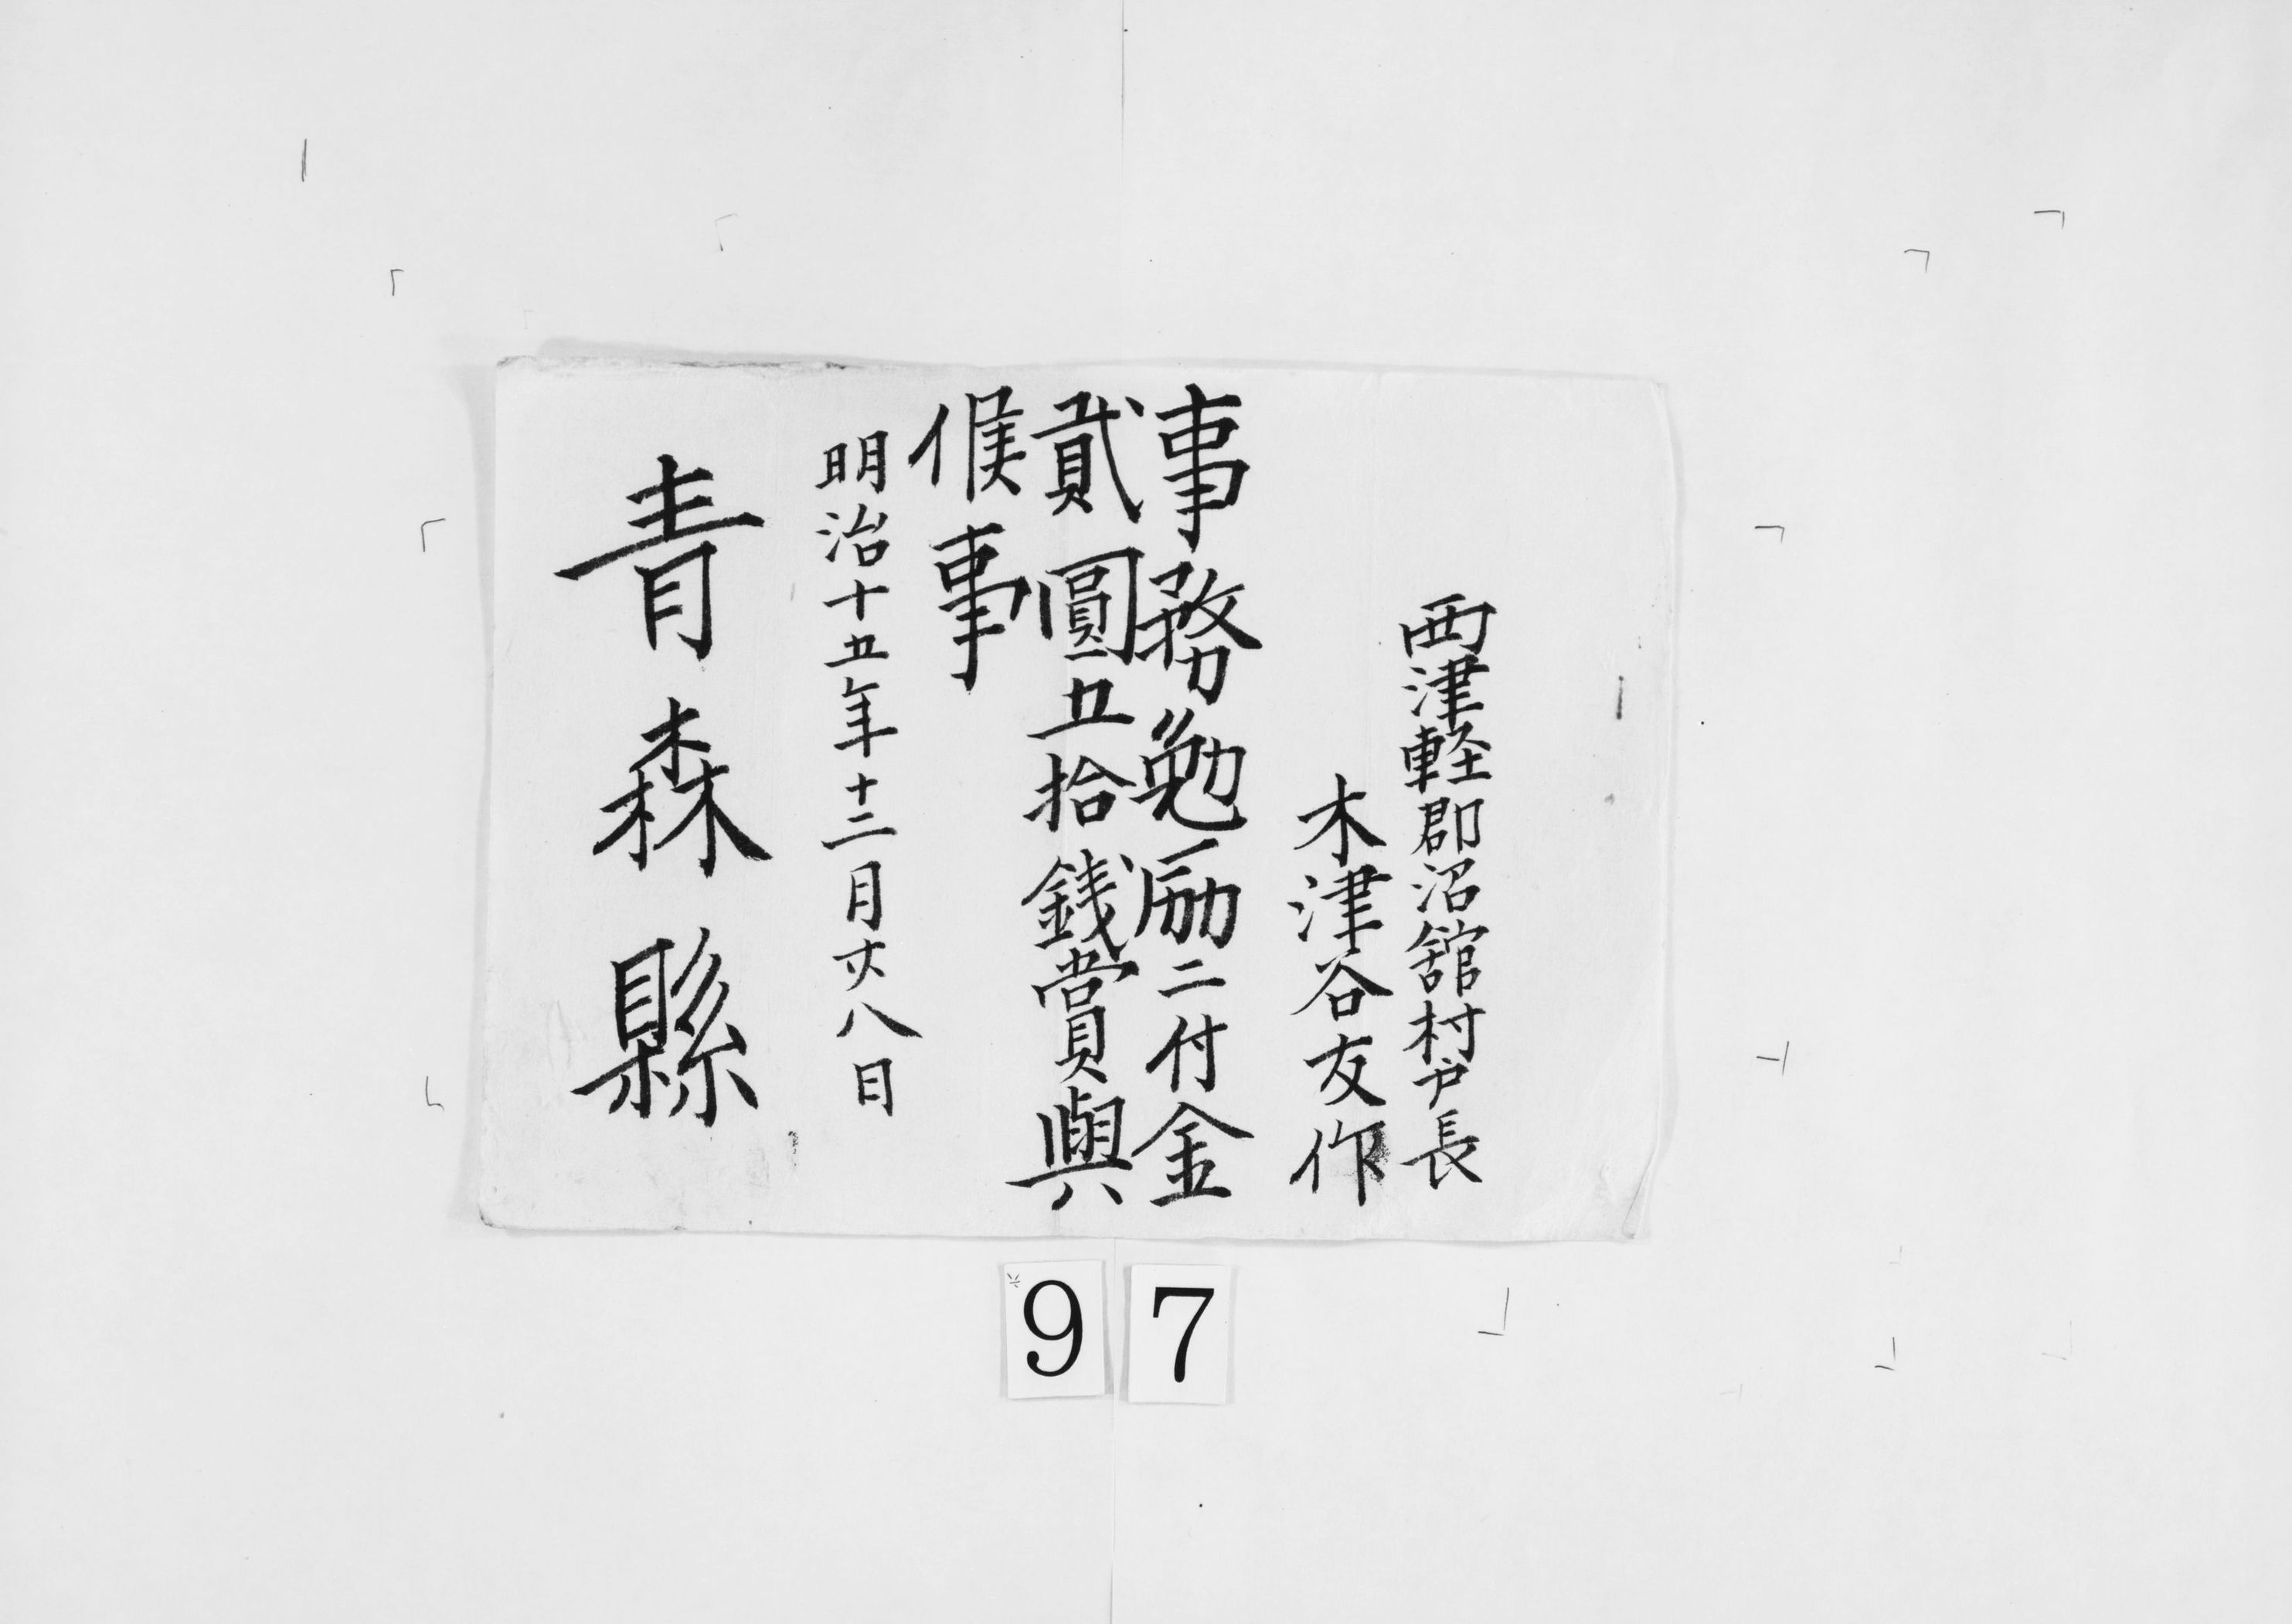 西津軽郡沼舘村戸長
木津谷友作
事務勉励ニ付金
貳圓五拾銭賞與
候事
明治十五年十二月廿八日
青森縣
97